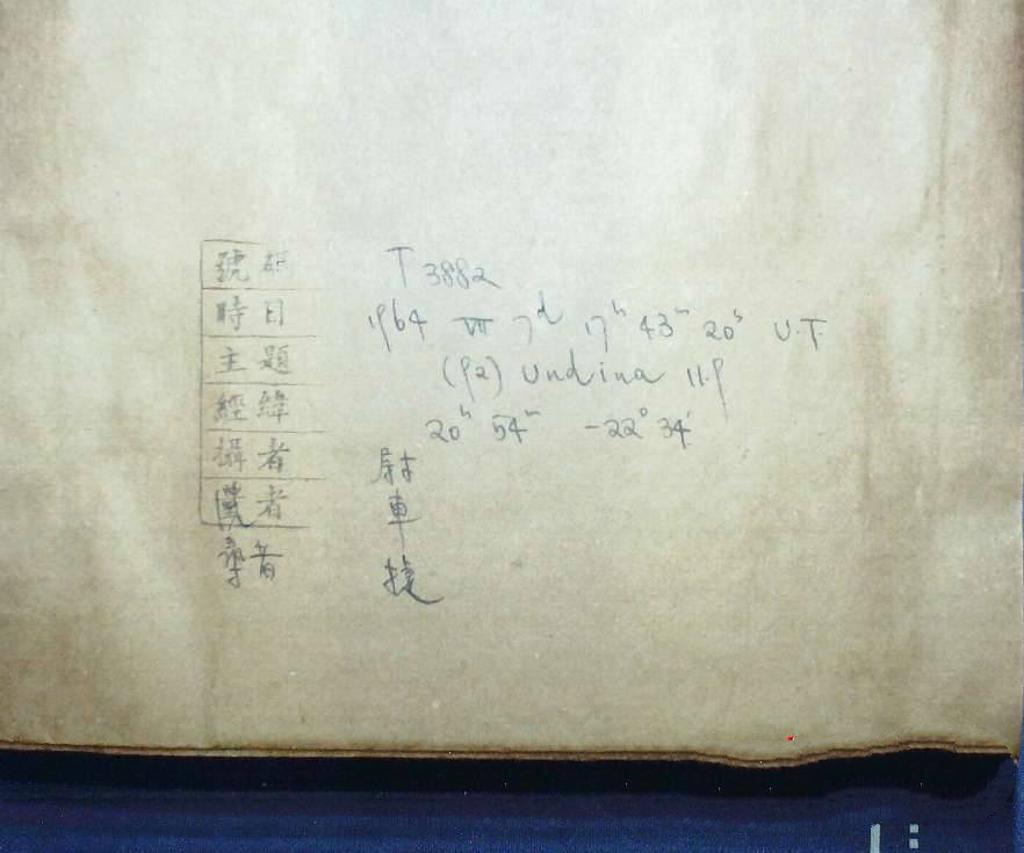 號碼 T 3882
時日 1964 VII 7d 17h 43m 20s U.T.
主題 (92) Undina 11.9
經緯 20h 54m -22° 34'
攝者 尉
者 車
捷